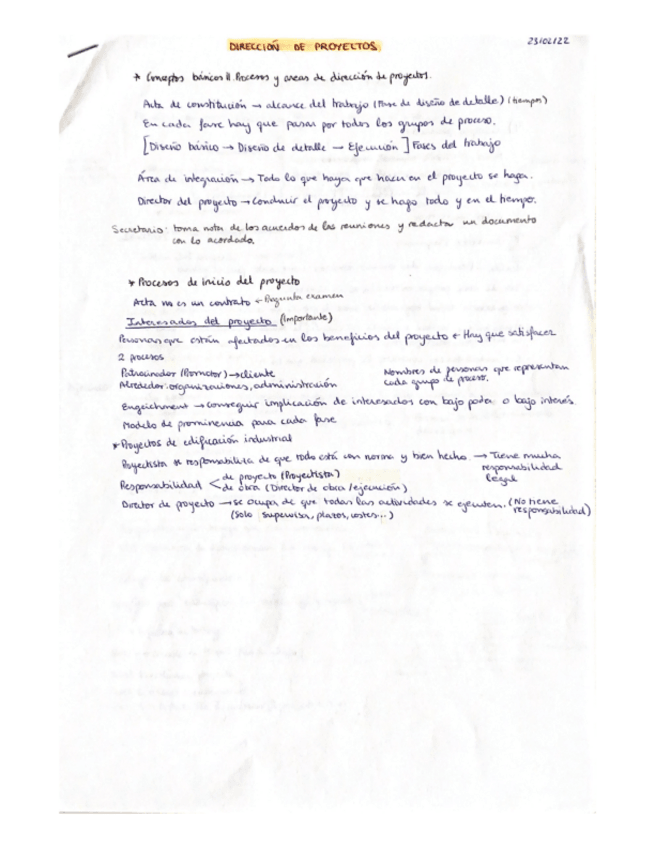 DIRECCIÓN DE PROYECTOS
23/02/22
* Conceptos básicos II. Procesos y areas de dirección de proyectos.
Acta de constitución → alcance del trabajo (Fase de diseño de detalle) (tiempos)
En cada fase hay que pasar por todos los grupos de proceso.
[Diseño básico → Diseño de detalle → Ejecución] Fases del trabajo
Área de integración → Todo lo que haya que hacer en el proyecto se haga.
Director del proyecto → Conducir el proyecto y se haga todo y en el tiempo.
Secretario: toma nota de los acuerdos de las reuniones y redactar un documento
con lo acordado.
* Procesos de inicio del proyecto
Acta no es un contrato ← Pregunta examen
Interesados del proyecto (Importante)
Personas que están afectados en los beneficios del proyecto ← Hay que satisfacer
2 procesos
Patrocinador (Promotor) → cliente
Alrededor: organizaciones, administración
Nombres de personas que representan
cada grupo de proceso.
→ conseguir implicación de interesados con bajo poder o bajo interés
Modelo de prominencia para cada fase
* Proyectos de edificación industrial
Proyectista responsabiliza de que todo está con norma y bien hecho. → Tiene mucha
responsabilidad
legal
Responsabilidad < de proyecto (Proyectista)
de obra (Director de obra/ejecución)
Director de proyecto → se ocupa de que todas las actividades se ejecuten. (No tiene
responsabilidad)
(Solo supervisa, plazos, costes...)